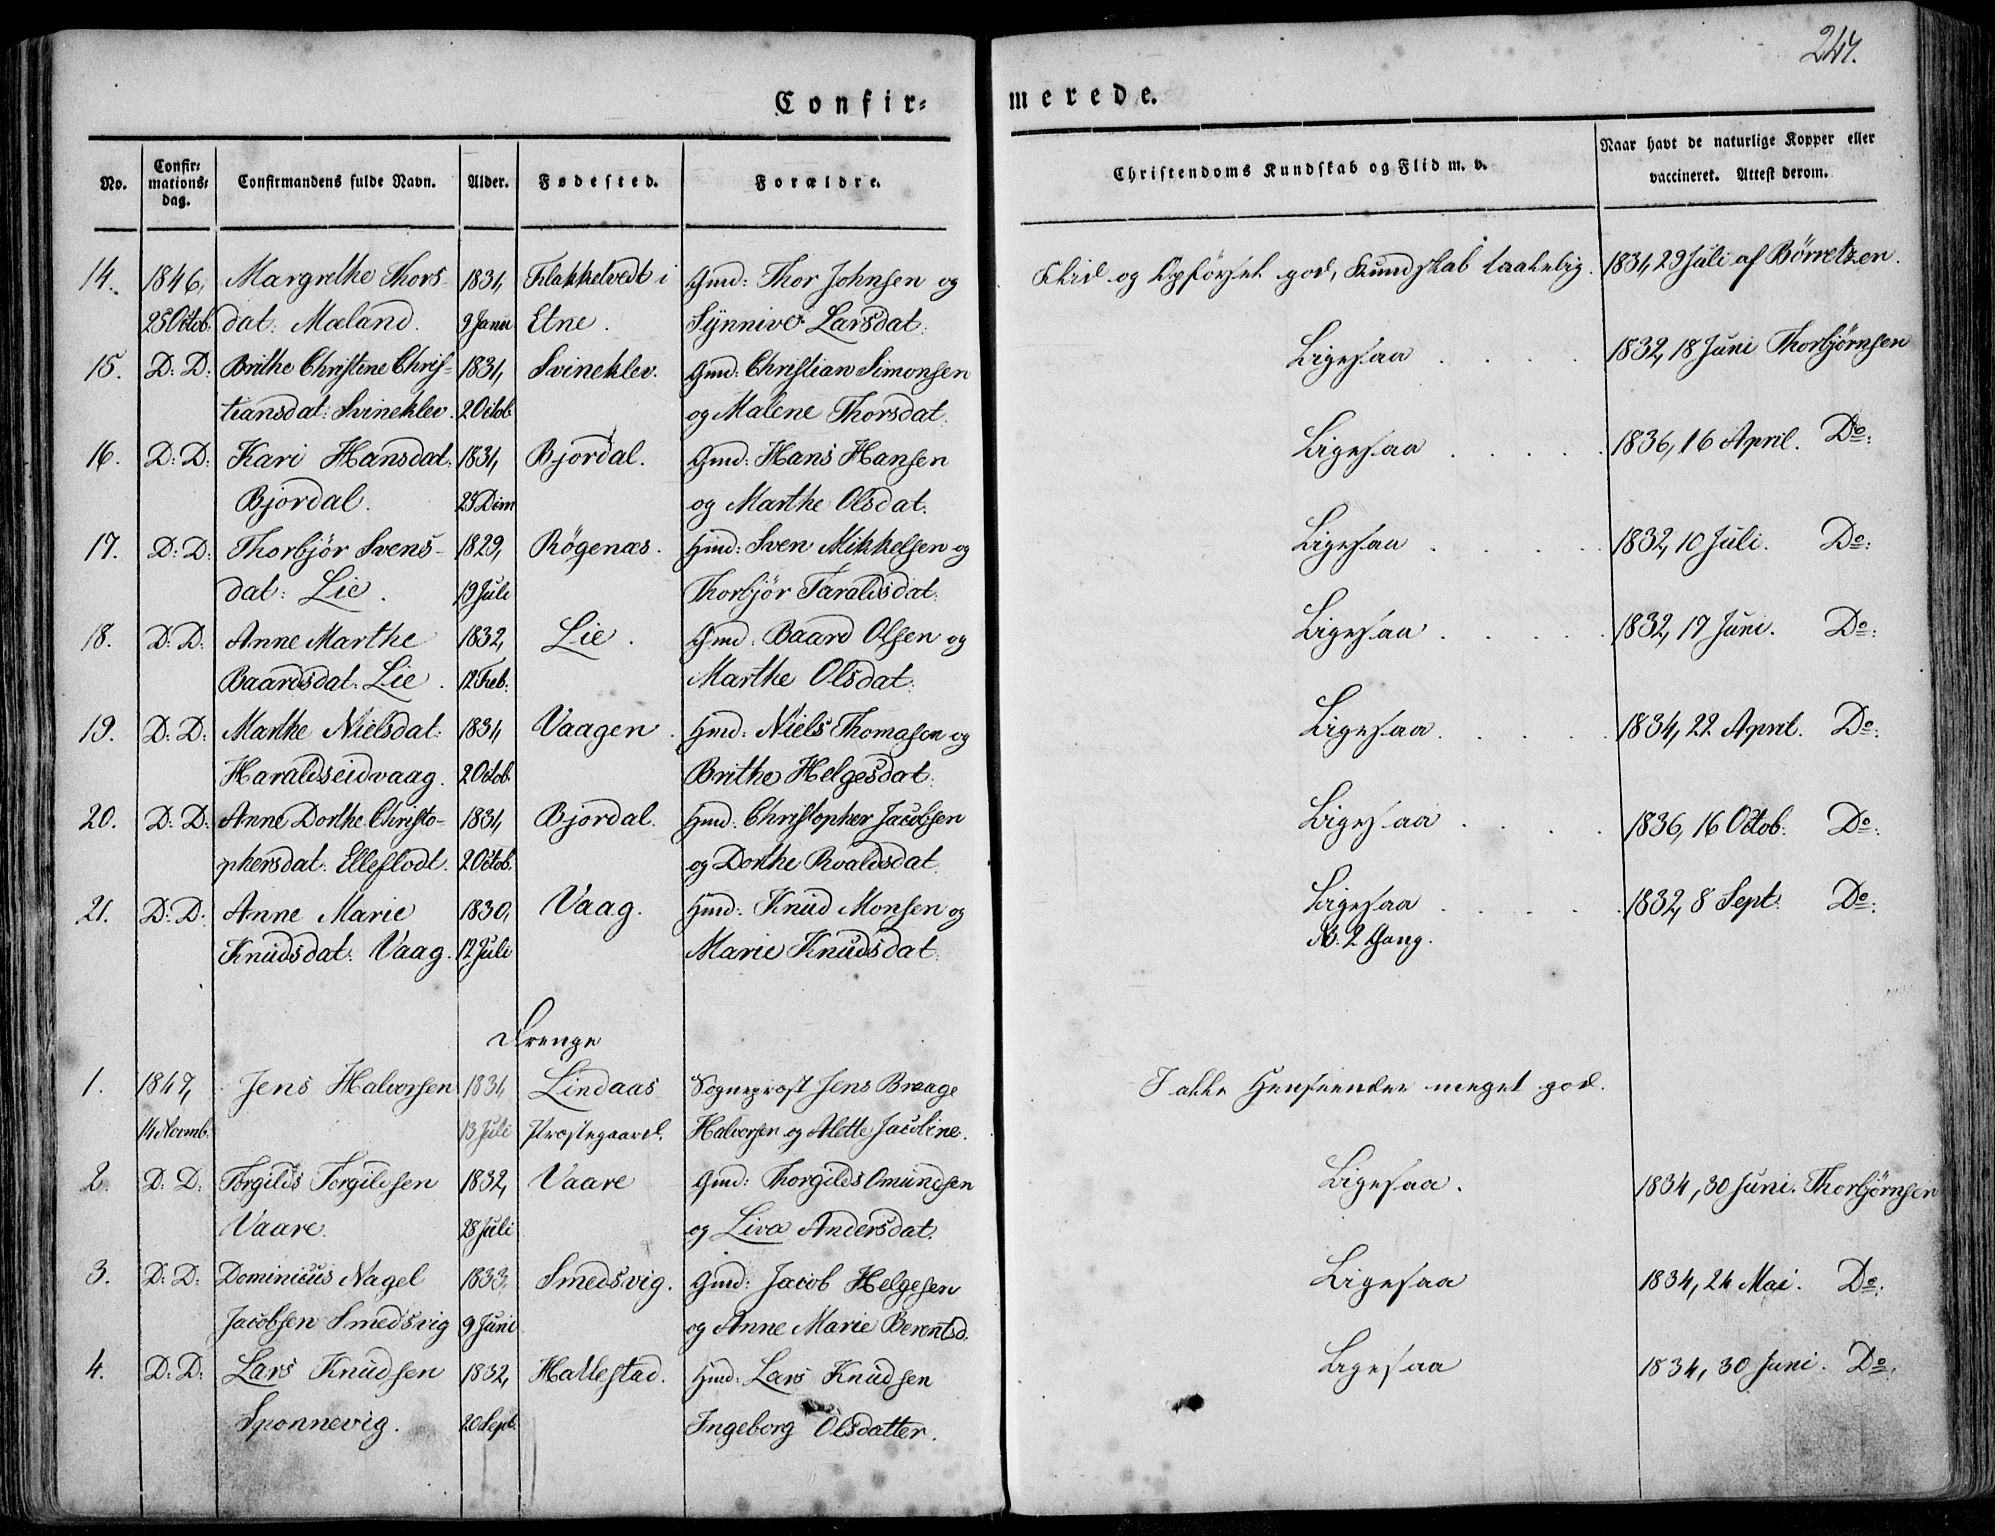 247.
Confir-
merede.
No.
Confir-
mations-
dag.
Confirmandens fulde Navn.
Alder.
Fødested.
Forældre.
Christendoms Kundskab og Flid m. v.
Naar havt de naturlige Kopper eller
vaccineret. Attest derom.
14. 1846, Margrethe Thors- 1831, Flakkelvedt i Gmd: Thor Johnsen og Flid og Opførsel god, Kundskab taalelig. 1831, 29 Juli af Börretzen.
25 Octob. dat: Mæland. 9 Janu Etne. Synnive Larsdat:
15. D: D: Brithe Christine Chris- 1831, Svineklev. Gmd: Christian Simonsen Ligesaa 1832, 18 Juni Thorbjørnsen
tiansdat: Svineklev. 2 Octob og Malene Thorsdat.
16. D: D: Kari Hansdat: 1831, Bjordal. Gmd: Hans Hansen Ligesaa 1836, 16 April. Do:
Bjordal. 25 Dcm og Marthe Olsdat.
17. D: D: Thorbjör Svens- 1829, Røgenæs. Hmd: Sven Mikkelsen og Ligesaa 1832, 10 Juli. Do:
dat: Lie. 19 Juli Thorbjör Taraldsdat:
18. D: D: Anne Marthe 1832, Lie. Gmd: Baard Olsen og Ligesaa 1832, 17 Juni. Do:
Baardsdat: Lie. 12 Feb: Marthe Olsdat:
19. D: D: Marthe Nielsdat: 1831, Vaagen. Hmd: Niels Thomasen og Ligesaa 1834, 22 April. Do:
Haraldseidvaag. 2 Octob. Brithe Helgesdat:
20. D: D: Anne Dorthe Christo- 1831, Bjordal. Hmd: Christopher Jacobsen Ligesaa 1836, 16 Octob: Do:
phersdat: Elleflodt. 2 Octob. og Dorthe Roaldsdat.
21. D: D: Anne Marie 1830, Vaag. Hmd: Knud Monsen og Ligesaa 1832, 8 Sept: Do:
Knudsdat: Vaag. 12 Juli Marie Knudsdat: 2 Gang.
Drenge
1. 1847, Jens Halvorsen 1831, Lindaas Sogneprost Jens Braage I alle Henseender meget god.
14 Novmb. 13 Juli Præstegaard. Halvorsen og Alette Jacoline.
2. D: D: Torgilds Torgildsen 1832, Vaare Gmd: Thorgilds Omundsen Ligesaa. 1834, 30 Juni. Thorbjørnsen
Vaare. 28 Juli og Liva Andersdat.
3. D: D: Dominicus Nagel 1833, Smedsvig. Gmd: Jacob Helgesen Ligesaa 1834, 24 Mai. Do:
Jacobsen Smedsvig 9 Juni og Anne Marie Berentsd.
4. D: D: Lars Knudsen 1832, Hallestad. Hmd: Lars Knudsen Ligesaa 1834, 30 Juni. Do.
Sponnevig. 20 Sept. Ingeborg Olsdatter.